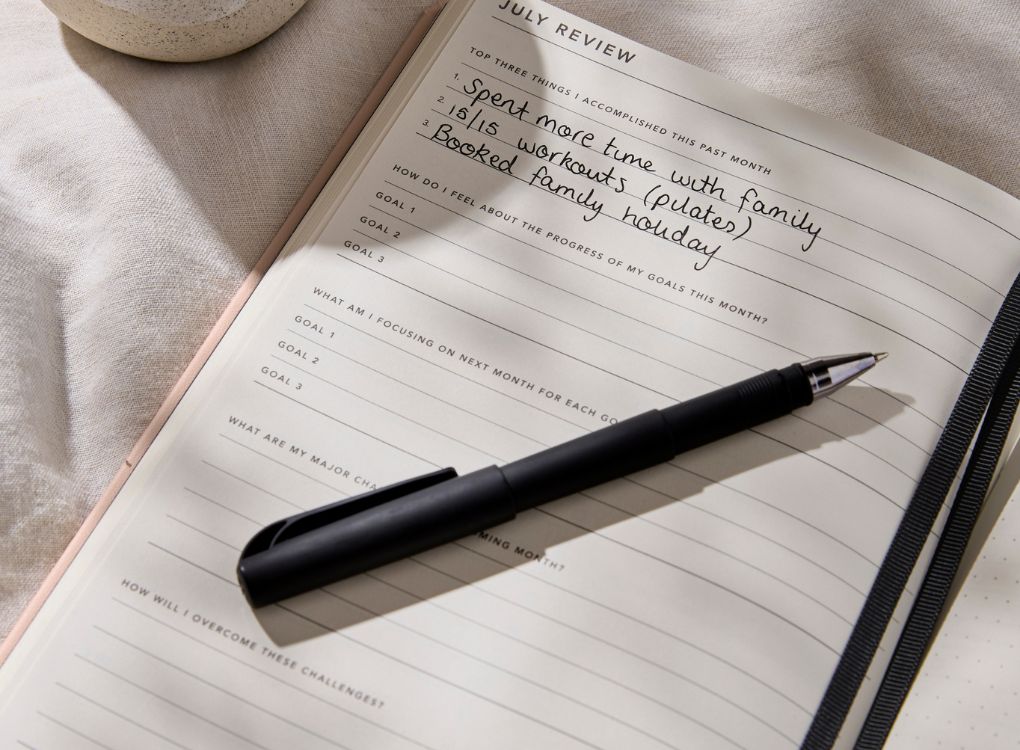 JULY REVIEW
TOP THREE THINGS I ACCOMPLISHED THIS PAST MONTH
1. Spent more time with family
2. 15/15 workouts (pilates)
3. Booked family holiday
HOW DO I FEEL ABOUT THE PROGRESS OF MY GOALS THIS MONTH?
GOAL 1
GOAL 2
GOAL 3
WHAT AM I FOCUSING ON NEXT MONTH FOR EACH GO
GOAL 1
GOAL 2
GOAL 3
WHAT ARE MY MAJOR CHA MING MONTH?
HOW WILL I OVERCOME THESE CHALLENGES?